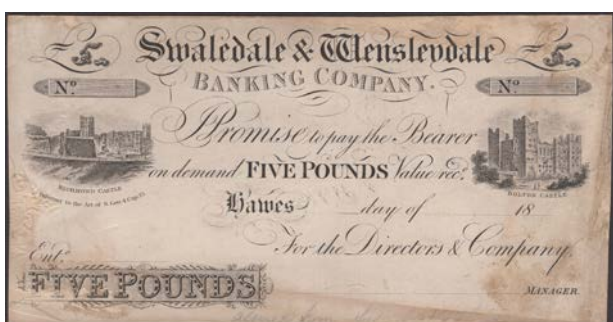 £5. Swaledale & Wensleydale £5.
Nº BANKING COMPANY. Nº
Promise to pay the Bearer
on demand FIVE POUNDS Value rec.d
RICHMOND CASTLE
BOLTON CASTLE
Pursuant to the Act of
Hawes day of 18
Ent.d For the Directors & Company.
FIVE POUNDS
MANAGER.